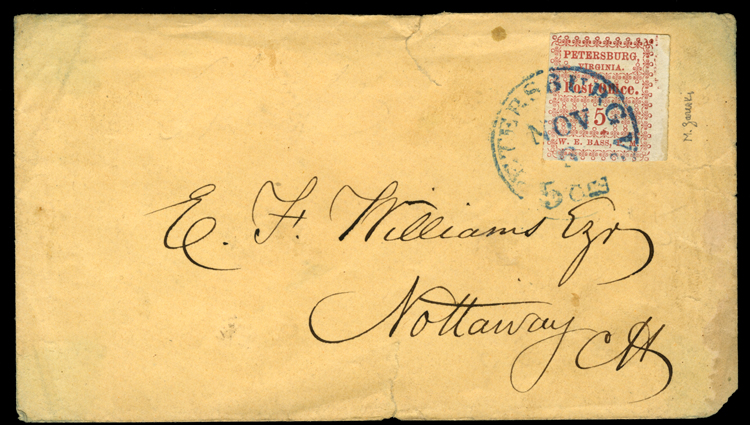 PETERSBURG,
VIRGINIA.
Post Office.
5
W. E. BASS,
PETERSBURG VA
NOV
5 cts
E. F. Williams Eqr
Nottaway CH